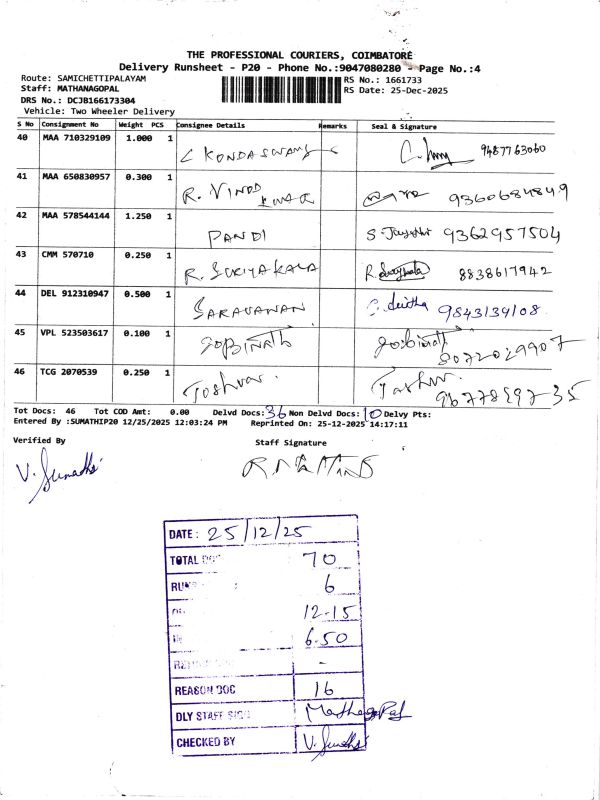 THE PROFESSIONAL COURIERS, COIMBATORE
Delivery Runsheet - P20 - Phone No.:9047080280 - Page No.:4
Route: SAMICHETTIPALAYAM
Staff: MATHANAGOPAL
DRS No.: DCJB166173304
Vehicle: Two Wheeler Delivery
RS No.: 1661733
RS Date: 25-Dec-2025
S No Consignment No Weight PCS Consignee Details Remarks Seal & Signature
40 MAA 710329109 1.000 1 L KONDASWAMY 9487763060
41 MAA 650830957 0.300 1 R. VINOD KUMAR 9360684849
42 MAA 578544144 1.250 1 PANDI 9362957504
43 CMM 570710 0.250 1 R. SURIYAKALA 8838617942
44 DEL 912310947 0.500 1 SARAVANAN 9843134108
45 VPL 523503617 0.100 1 GOBINATH gobinath 8072029907
46 TCG 2070539 0.250 1
Tot Docs: 46 Tot COD Amt: 0.00 Delvd Docs: 36 Non Delvd Docs: 10 Delvy Pts:
Entered By :SUMATHIP20 12/25/2025 12:03:24 PM Reprinted On: 25-12-2025 14:17:11
Verified By
Staff Signature
V. Sumathi
DATE: 25/12/25
TOTAL 70
6
12-15
6.50
-
REASON DOC 16
DLY STAFF SIGN
CHECKED BY V. Sumathi